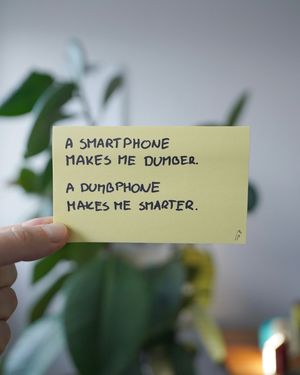 A SMARTPHONE
MAKES ME DUMBER.
A DUMBPHONE
MAKES ME SMARTER.